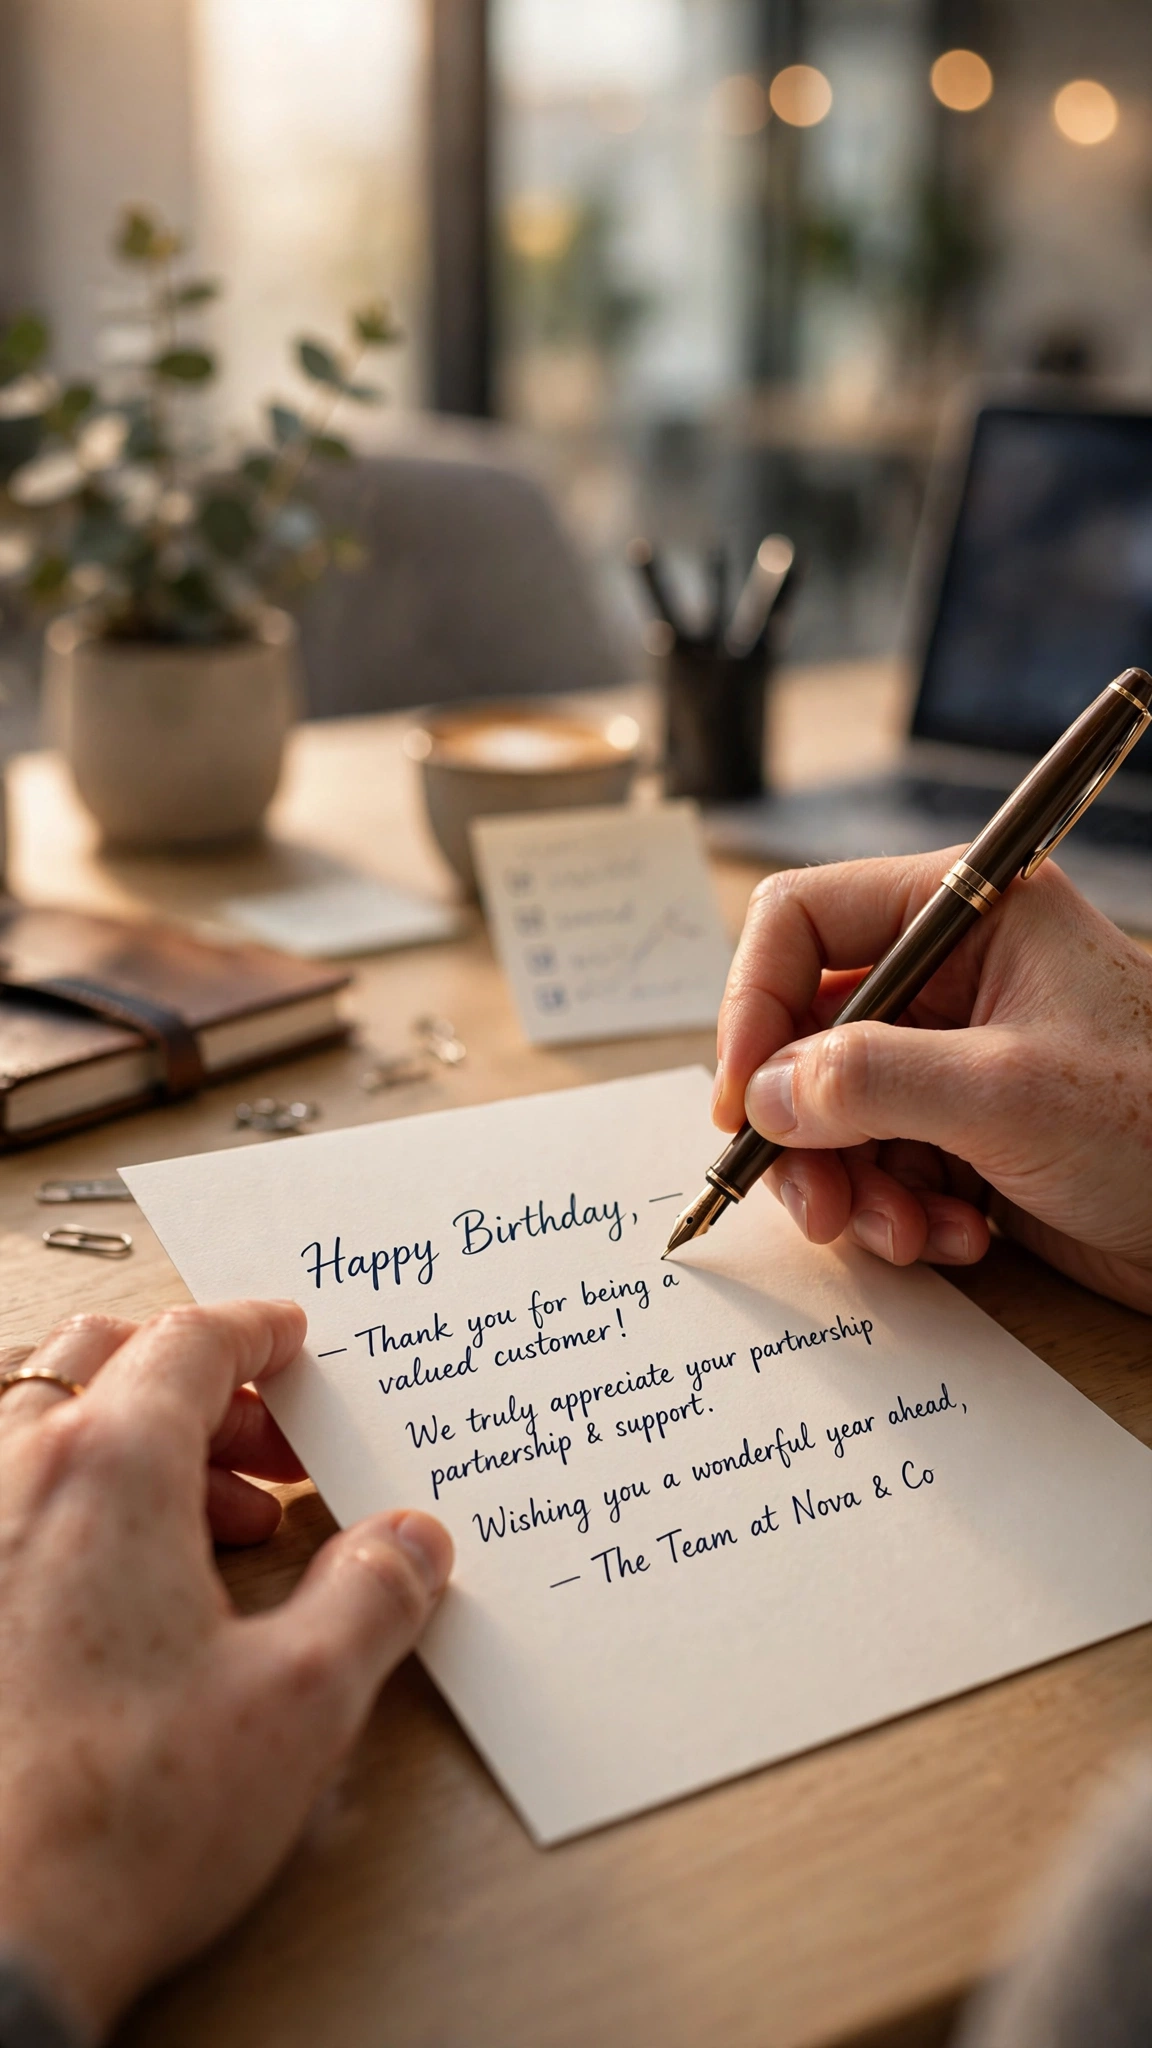 Happy Birthday, —
— Thank you for being a
valued customer!
We truly appreciate your partnership
partnership & support.
Wishing you a wonderful year ahead,
— The Team at Nova & Co